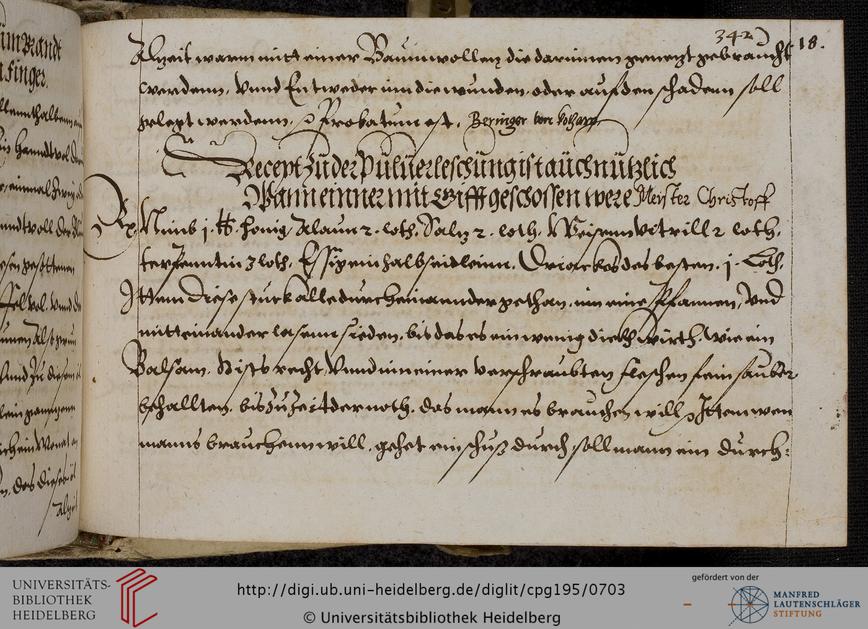 342
18.
Alzeit warm mitt einer Baumwollen die darinnen genetzt gebraucht
werdenn, vnnd Entweder inn die wunden, oder auf den schaden soll
gelegt werdenn, Probatum est. Beringer von
Recept Zu der Puluerleschung ist auch nützlich
Wann einner mit Gifft geschossen were Meister Christoff
Rp Nimb j. ℔. honig, Alaun 2. loth, Saltz 2. loth, Weisenn vitrill 2 loth,
terpenntin 3 loth, Essig ein halb seidlenn, des besten, j. Loth,
Ittem diese stuck alle durcheinannder gethan, inn eine Pfannen, vnd
mitteinander lasenn sieden, bis das es ein wenig dickh wirth, wie ein
Balsam, Ists recht, Vnnd inn einer verschraubten fleschen fein sauber
behallten, bis zu Zeit der noth, das mann es brauchen will, Itten wen
manns brauchenn will, gehet ein schuß durch soll mann ein durch:
im Brandt
Finger.
alzeit
UNIVERSITÄTS-
BIBLIOTHEK
HEIDELBERG
http://digi.ub.uni-heidelberg.de/diglit/cpg195/0703
© Universitätsbibliothek Heidelberg
gefördert von der
MANFRED
LAUTENSCHLÄGER
STIFTUNG